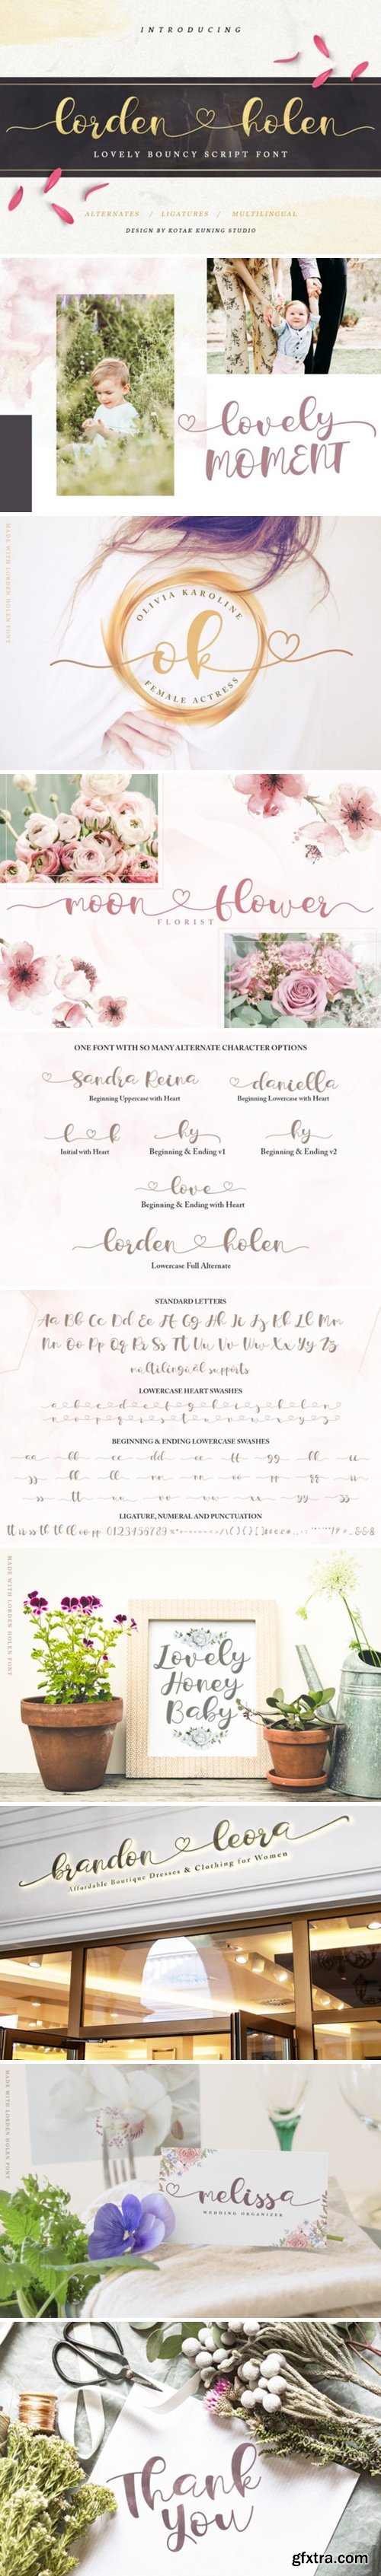 INTRODUCING
lorden holen
LOVELY BOUNCY SCRIPT FONT
ALTERNATES / LIGATURES / MULTILINGUAL
DESIGN BY KOTAK KUNING STUDIO
lovely
MOMENT
MADE WITH LORDEN HOLEN FONT
OLIVIA KAROLINE
ok
FEMALE ACTRESS
moon flower
FLORIST
ONE FONT WITH SO MANY ALTERNATE CHARACTER OPTIONS
Sandra Reina daniella
Beginning Uppercase with Heart Beginning Lowercase with Heart
l k hy hy
Initial with Heart Beginning & Ending v1 Beginning & Ending v2
love
Beginning & Ending with Heart
lorden holen
Lowercase Full Alternate
STANDARD LETTERS
Aa Bb Cc Dd Ee Ff Gg Hh Ii Jj Kk Ll Mm
Nn Oo Pp Qq Rr Ss Tt Uu Vv Ww Xx Yy Zz
multilingual supports
LOWERCASE HEART SWASHES
a b c d e f g h i j k l m
n o p q r s t u v w x y z
BEGINNING & ENDING LOWERCASE SWASHES
LIGATURE, NUMERAL AND PUNCTUATION
0123456789
MADE WITH LORDEN HOLEN FONT
Lovely
Honey
Baby
brandon leora
Affordable Boutique Dresses & Clothing for Women
MADE WITH LORDEN HOLEN FONT
melissa
WEDDING ORGANIZER
Thank
you
gfxtra.com